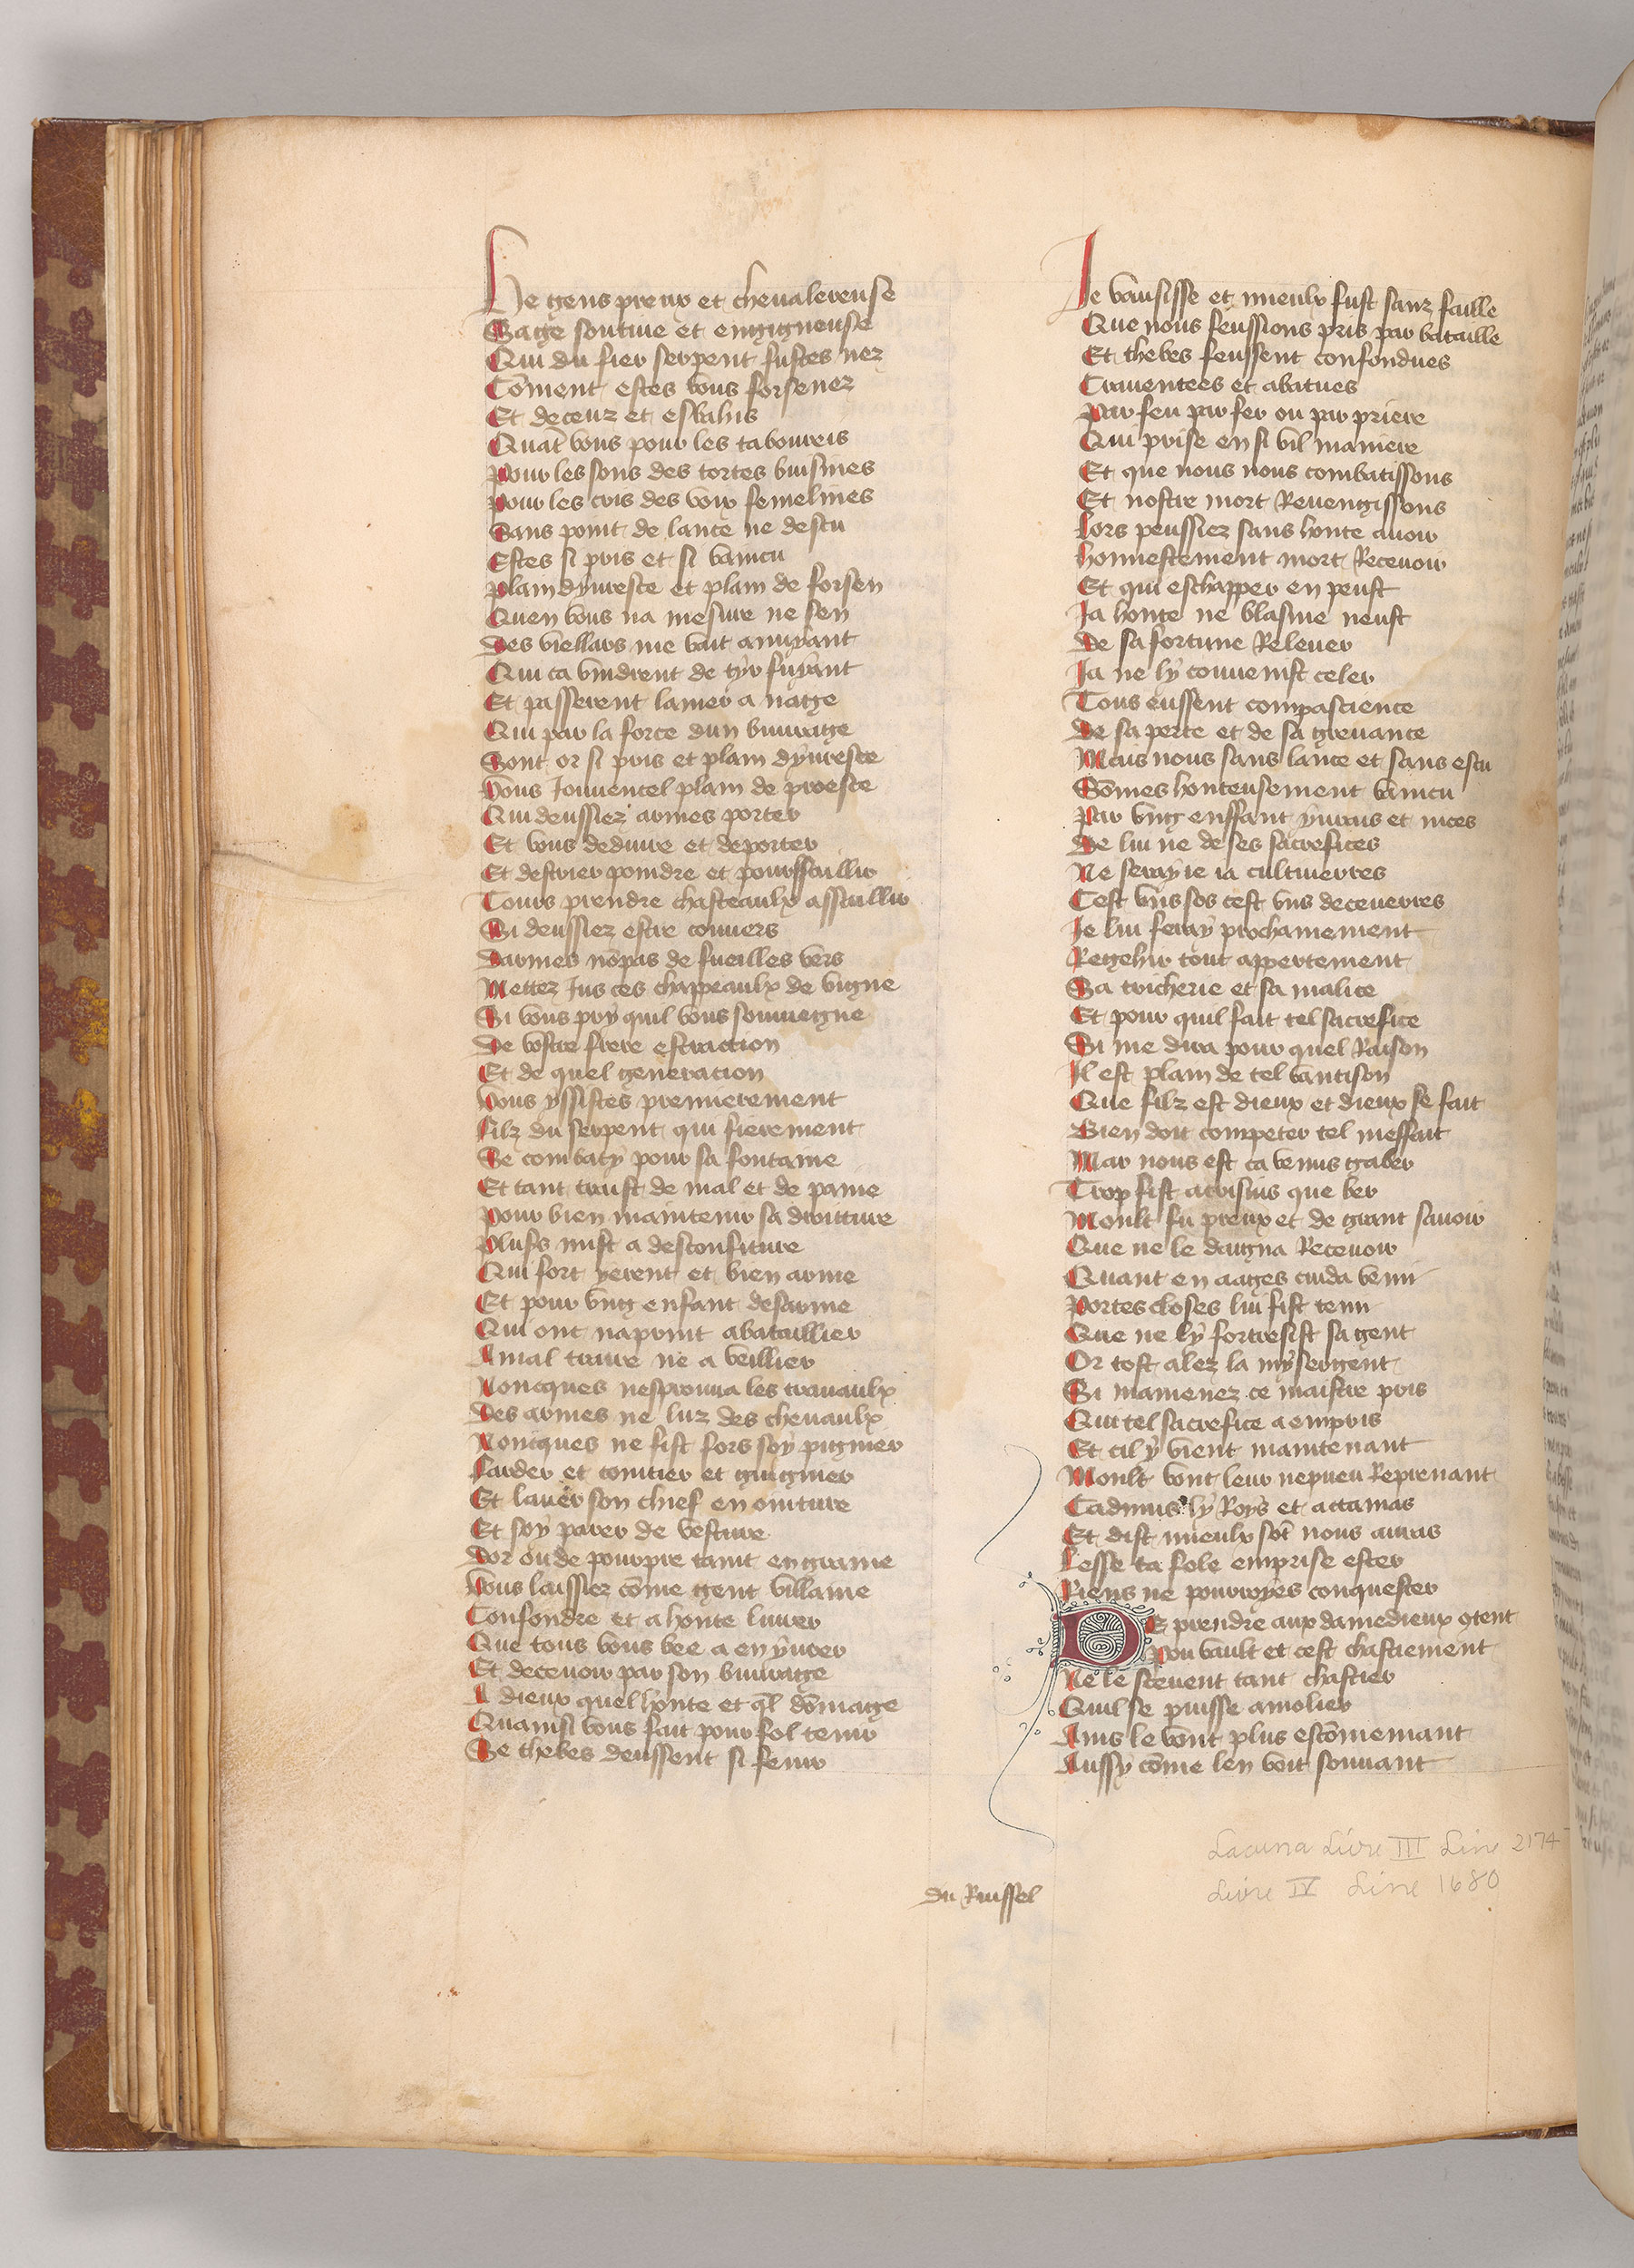 He gens preux et cheualereuse
Sage soutiue et engigneuse
Qui du fier serpent fustes nez
Cōment estes vous forsenez
Et deceuz et esbahis
Quāt vous pour les taboureis
Pour les sons des tortes buisines
Pour les cris des voix femelines
Sans point de lance ne descu
Estes si pris et si vaincu
Plain dyuresce et plain de forsen
Quen vous na mesure ne sen
Des viellars me vait anuyant
Qui ca vindrent de tyr fuyant
Et passerent la mer a nage
Qui par la force dun buurage
Sont or si pris et plain dyuresce
Vous Jouuencel plain de proesce
Qui deussiez armes porter
Et vous deduire et deporter
Et destrier poindre et pourssaillir
Tours prendre chasteaulx assaillir
Si deussiez estre couuers
Darmes nōpas de fueilles vers
Mettez Jus ces chappeaulx de vigne
Si vous pry quil vous souuiegne
De vostre frere estraction
Et de quel generacion
Vous yssistes premierement
Filz du serpent qui fierement
Se combaty pour sa fontaine
Et tant traist de mal et de paine
Pour bien maintenir sa droitture
Plusrs mist a desconfiture
Qui fort yerent et bien arme
Et pour vng enfant desarme
Qui ont naprint abataillier
A mal traire ne a veillier
Noncques nesprouua les trauaulx
Des armes ne luz des cheuaulx
Noncques ne fist fors soy pignier
Farder et cointier et guignier
Et lauer son chief en ointure
Et soy parer de vesture
Dor ou de pourpre taint en graine
Vous laissiez cōme gent villaine
Confondre et a honte liurer
Que tous vous bee a enyurer
Et deceuoir par son buurage
A dieux quel honte et q̄l dōmage
Quainsi vous fait pour fol tenir
Se thebes deussent si fenir
Je vausisse et mieulx fust sanz faille
Que nous feussions pris par bataille
Et thebes feussent confondues
Crauentees et abatues
Par feu par fer ou par priere
Qui prise en si vil maniere
Et que nous nous combatissons
Et nostre mort Reuengissons
Lors peussiez sans honte auoir
Honnestement mort Receuoir
Et qui eschapper en peust
Ja honte ne blasme neust
De sa fortune Releuer
Ja ne ly conuenist celer
Tous eussent compascience
De sa perte et de sa greuance
Mais nous sans lance et sans escu
Sōmes honteusement vaincu
Par vng enffant yurais et nices
De lui ne de ses sacrefices
Ne seray ie ia cultiuerres
Cest vns sos cest vns deceuerres
Je lui feray prochainement
Regehir tout appertement
Sa tricherie et sa malice
Et pour quil fait tel sacrefice
Si me dira pour quel Raison
Il est plain de tel vantison
Que filz est dieux et dieux se fait
Bien doit comperer tel meffait
Mar nous est ca venus gaber
Trop fist acrisius que ber
Moult fu preux et de grant sauoir
Que ne le daigna Receuoir
Quant en arges cuida venir
Portes closes lui fist tenir
Que ne ly fortresist sa gent
Or tost alez la my sergent
Si mamenez ce maistre pris
Qui tel sacrefice a empris
Et cil y vient maintenant
Moult vont leur nepueu Reprenant
Cadmus ly Roys et attamas
Et dist mieulx sōt nous auras
Lesse ta fole emprise ester
Riens ne pourroyes conquester
De prendre aux damedieux 9tent
Pou vault et cest chastiement
Ne le sceuent tant chastier
Quil se puisse amolier
Ains le vont plus escōmemant
Aussy cōme len voit souuant
du Ruissel
Lacuna Livre III Line 2174
Livre IV Line 1680